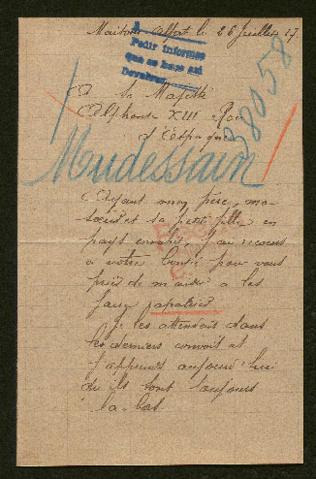 Maisons Alfort le 26 Juillet 17.
Pedir informes
que se hace así
38058
A Sa Majesté
Alphonse XIII Roi
d'Espagne
Mudessain
Ayant mon père, ma
soeur et sa petite fille en
pays envahi, j'ai recours
à votre bonté pour vous
prier de m'aider à les
faire rapatrier
Je les attendais dans
les derniers convois et
j'apprends aujourd'hui
qu'ils sont toujours
là-bas